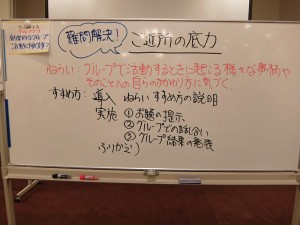 難問解決！ ご近所の底力
ねらい：グループで活動するときに起こる様々な事柄や
そのことへの自らのかかわり方に気づく
すすめ方：導入 ねらい すすめ方の説明
実施 ①お題の提示
②グループでの話し合い
③グループ結果の発表
ふりかえり